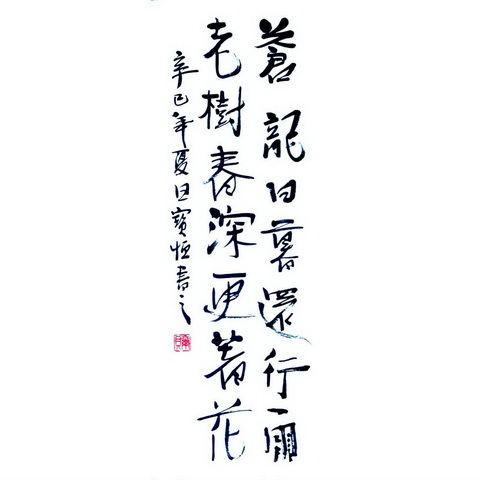 蒼龍日暮還行雨
老樹春深更著花
辛巳年夏日寶恒書之